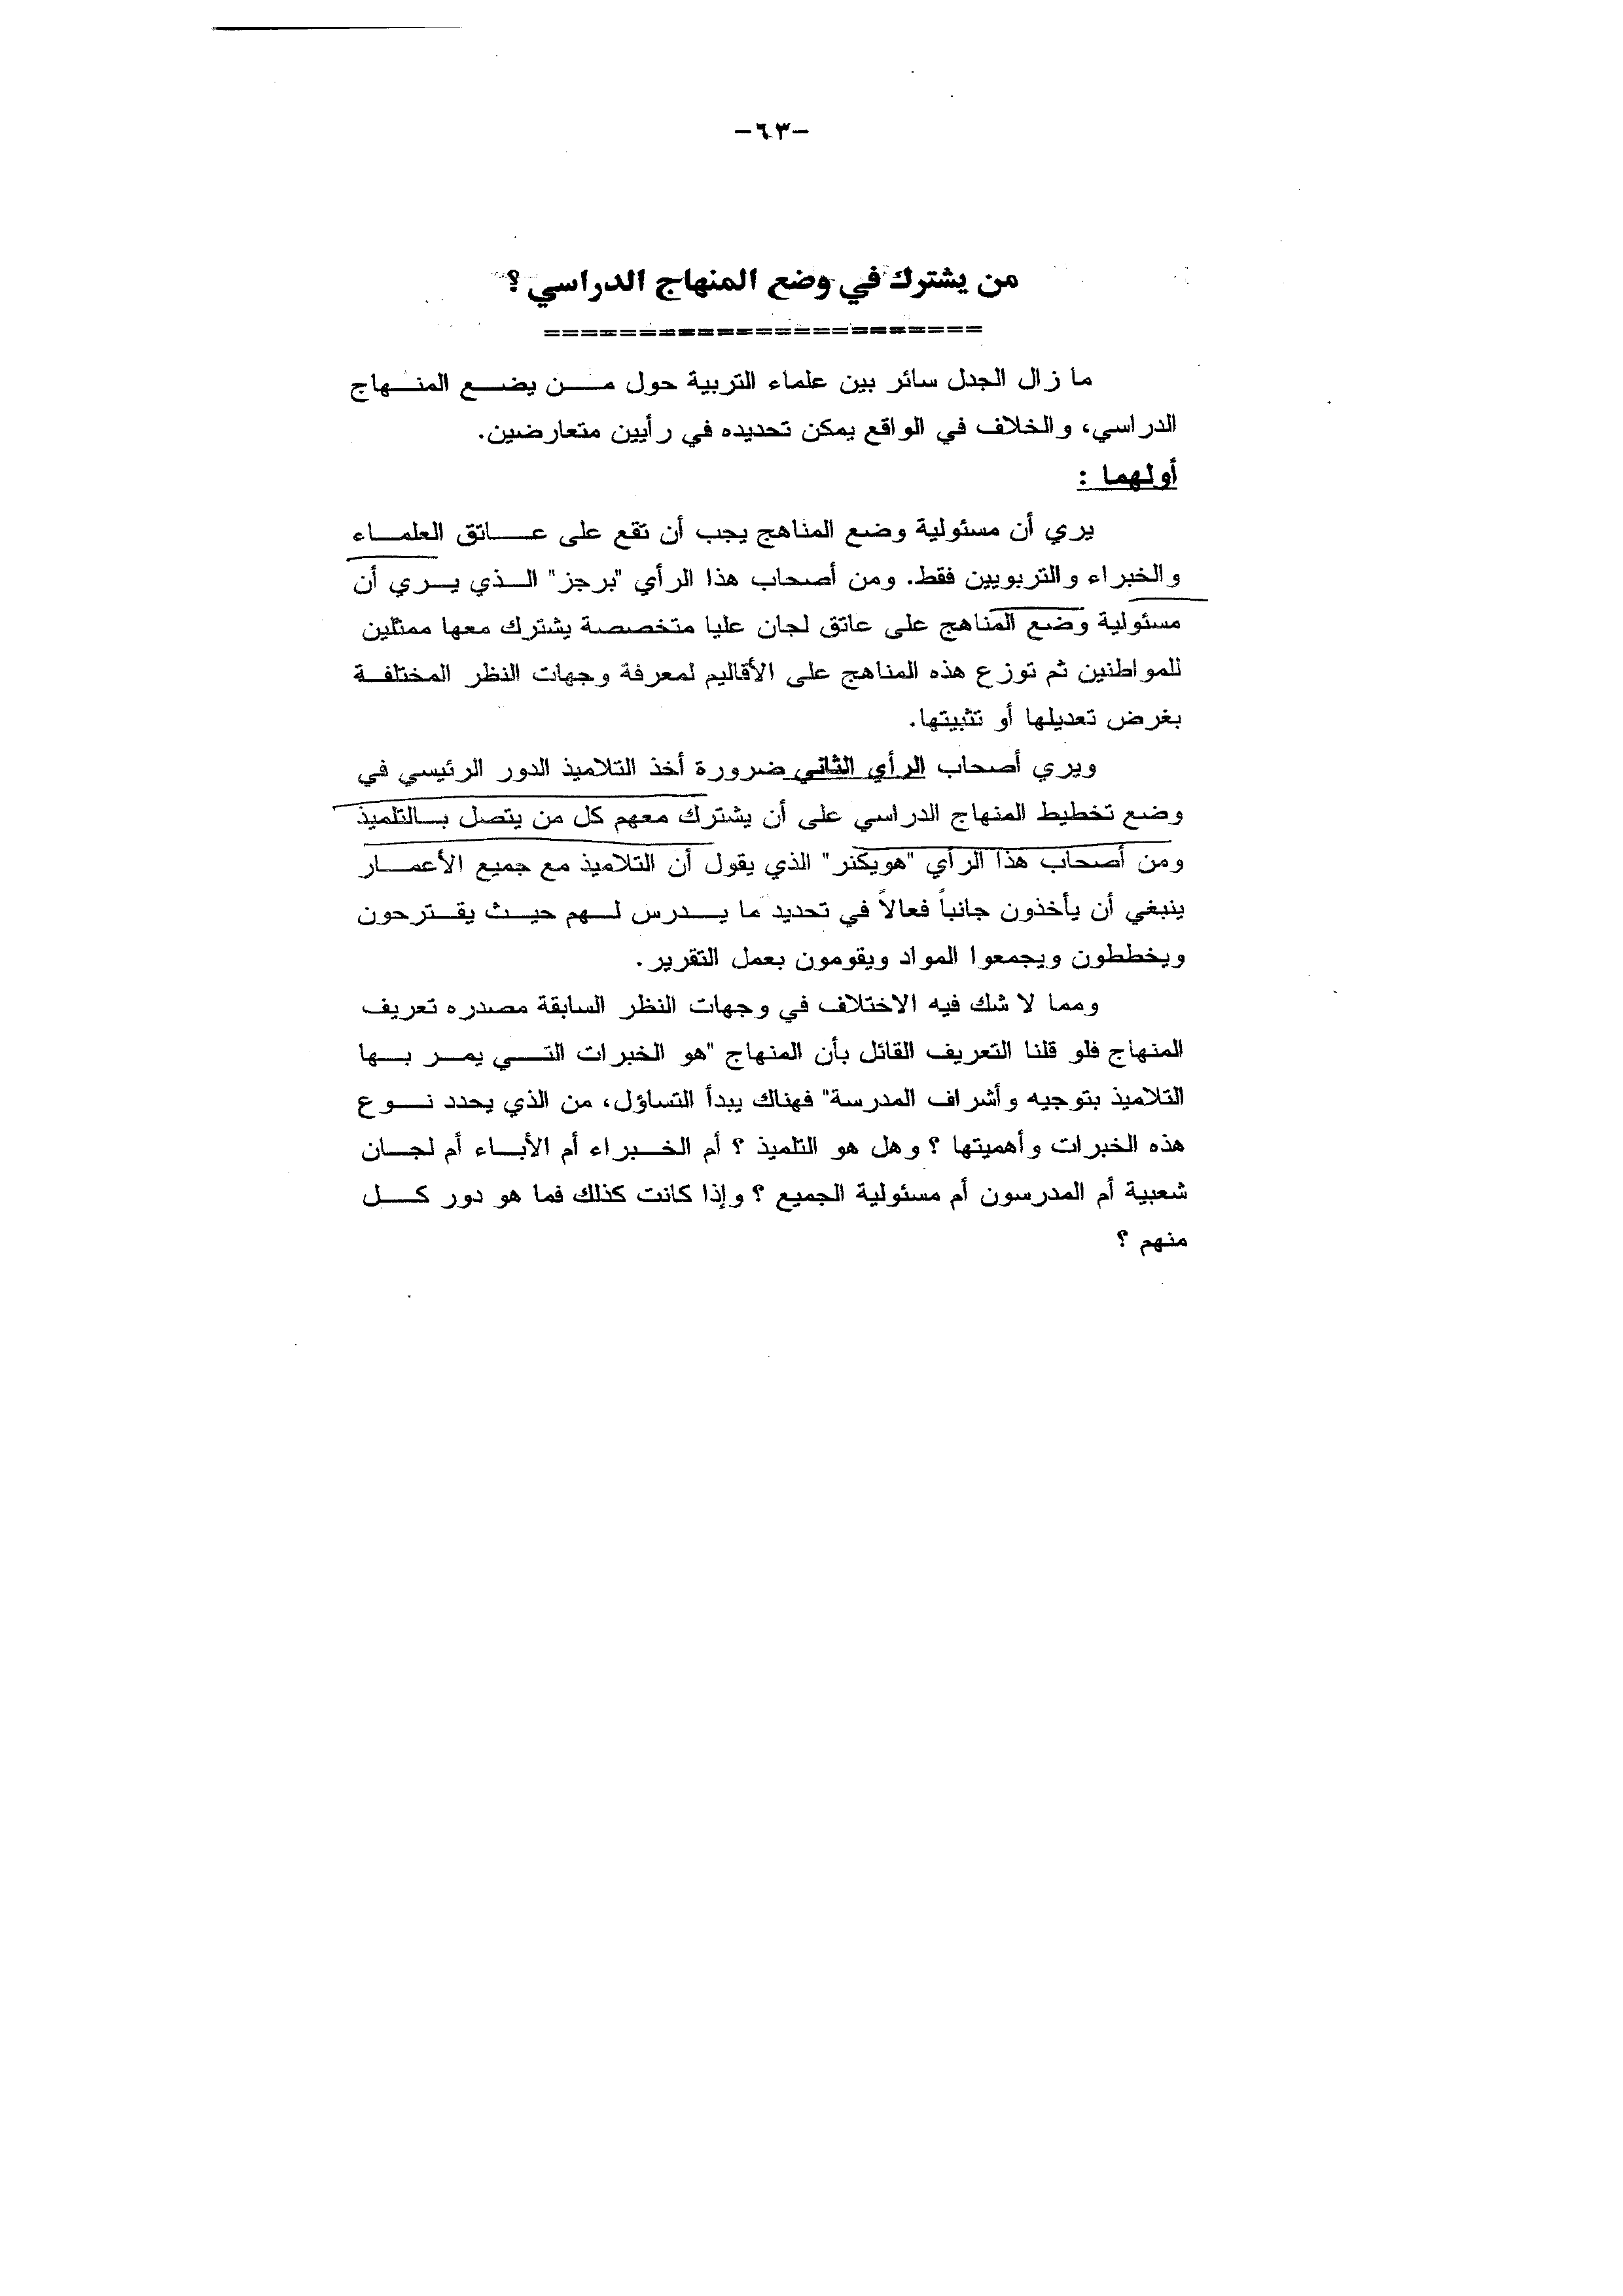 -٦٣-
من يشترك في وضع المنهاج الدراسي ؟
=======================
ما زال الجدل سائر بين علماء التربية حول من يضع المنهاج
الدراسي، والخلاف في الواقع يمكن تحديده في رأيين متعارضين.
أولهما :
يري أن مسئولية وضع المناهج يجب أن تقع على عاتق العلماء
والخبراء والتربويين فقط. ومن أصحاب هذا الرأي "برجز" الذي يري أن
مسئولية وضع المناهج على عاتق لجان عليا متخصصة يشترك معها ممثلين
للمواطنين ثم توزع هذه المناهج على الأقاليم لمعرفة وجهات النظر المختلفة
بغرض تعديلها أو تثبيتها.
ويري أصحاب الرأي الثاني ضرورة أخذ التلاميذ الدور الرئيسي في
وضع تخطيط المنهاج الدراسي على أن يشترك معهم كل من يتصل بالتلميذ
ومن أصحاب هذا الرأي "هويكنر" الذي يقول أن التلاميذ مع جميع الأعمار
ينبغي أن يأخذون جانباً فعالاً في تحديد ما يدرس لهم حيث يقترحون
ويخططون ويجمعوا المواد ويقومون بعمل التقرير.
ومما لا شك فيه الاختلاف في وجهات النظر السابقة مصدره تعريف
المنهاج فلو قلنا التعريف القائل بأن المنهاج "هو الخبرات التي يمر بها
التلاميذ بتوجيه وأشراف المدرسة" فهناك يبدأ التساؤل، من الذي يحدد نوع
هذه الخبرات وأهميتها ؟ وهل هو التلميذ ؟ أم الخبراء أم الأباء أم لجان
شعبية أم المدرسون أم مسئولية الجميع ؟ وإذا كانت كذلك فما هو دور كل
منهم ؟